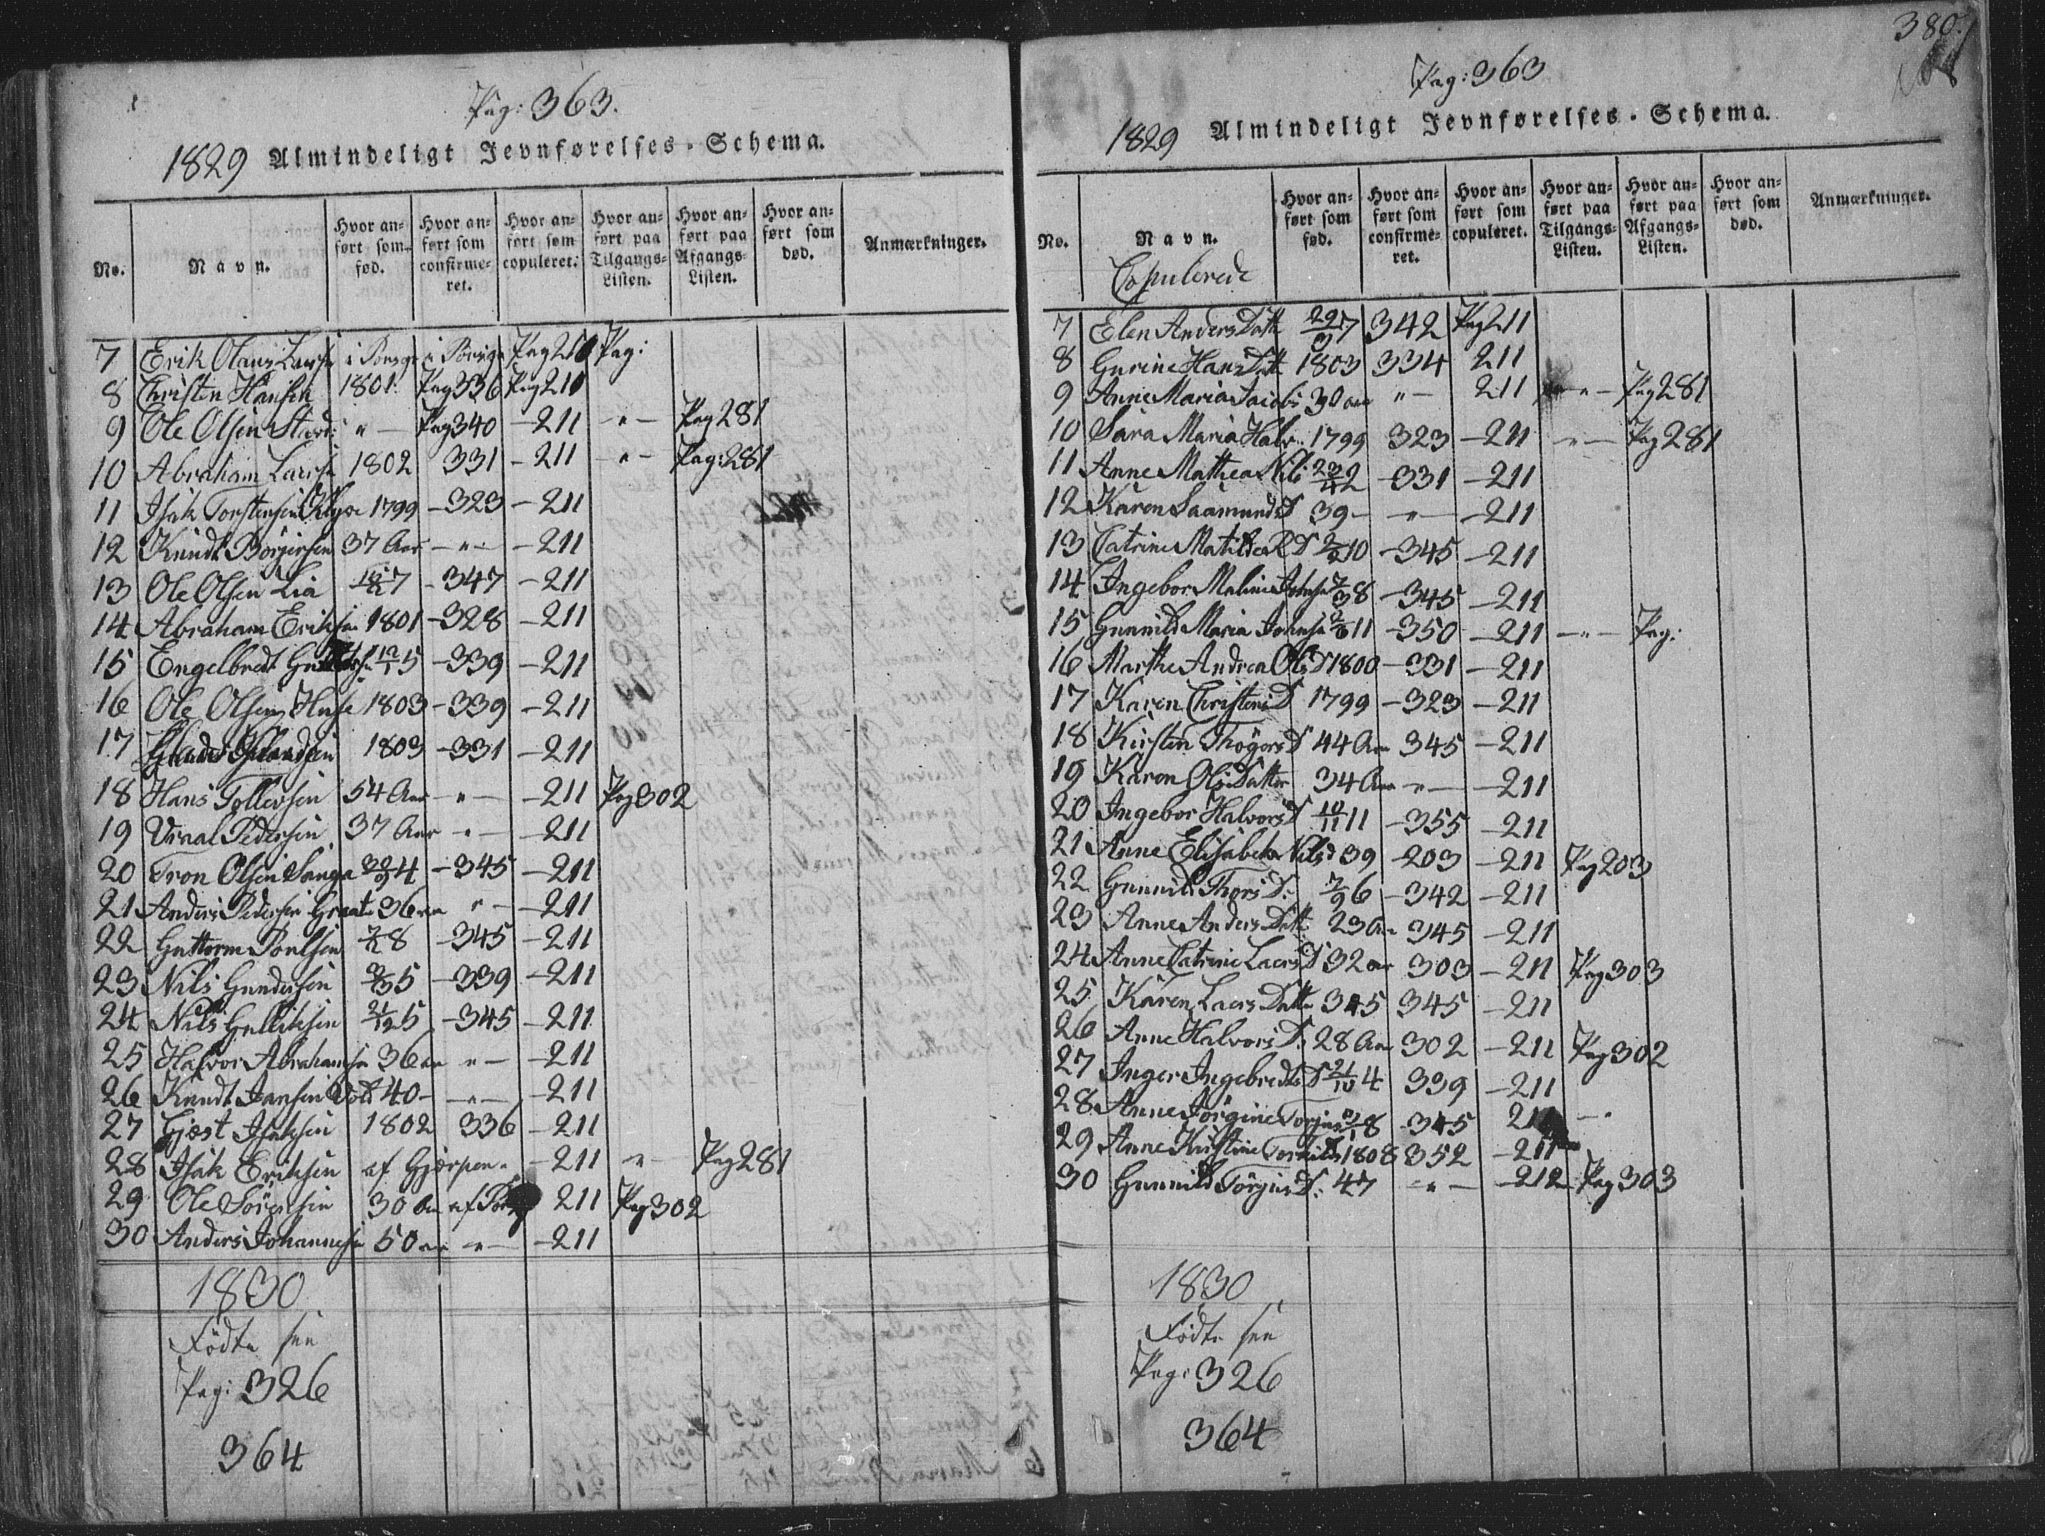 Pag: 363.
1829 Almindeligt Jevnførelses-Schema.
No. Navn. Hvor anført som fød. Hvor anført som confirmeret. Hvor anført som copuleret. Hvor anført paa Tilgangs-Listen. Hvor anført paa Afgangs-Listen. Hvor anført som død. Anmærkninger.
7 Erik Olaus Larss i Porsgr i Porsgr Pag 210 Pag:
8 Christen Hansen 1801. Pag 336 Pag 210
9 Ole Olsen " — Pag 340 -211 -"- Pag 281
10 Abraham Larss 1802 331 -211 -"- Pag: 281
11 Isak Torstensen 1799 -323 -211
12 Knudt Børjersen 37 Aar -"- -211
13 Ole Olsen Lia 7 -347 -211
14 Abraham Eriksen 1801 -328 -211
15 Engelbredt 12/1 5 -339 -211
16 Ole Olsen 1803 -339 -211
17 1803 -331 -211
18 Hans Tollevsen 54 Aar -"- -211 Pag 302
19 Vraal Pedersen 37 Aar -"- -211
20 Tron Olsen Langa 4 -345 -211
21 Anders Pedersen 36 aar "- -211
22 Guttorm Poulsen 8 -345 -211
23 Nils Gundersen 5 -339 -211
24 Nils Gulliksen 21/12 5 -345 -211
25 Halvor Abrahamsen 36 aar "- -211
26 Knudt Jansen 40- -"- -211
27 Gjøst Isaksen 1802 336 -211
28 Isak Eriksen af Gjerpen. -211 "- Pag 281
29 Ole Sørensen 30 Aar af 211 Pag 302
30 Anders Johannesen 50 aar -"- -211
1830
Fødte see
Pag: 326
364
380.
Pag: 363
1829 Almindeligt Jevnførelses-Schema.
No. Navn. Hvor anført som fød. Hvor anført som confirmeret. Hvor anført som copuleret. Hvor anført paa Tilgangs-Listen. Hvor anført paa Afgangs-Listen. Hvor anført som død. Anmærkninger.
Copulerede
7 Elen Anders Datt 29/3 7 342 Pag 211
8 Gurine Hans Datt 1803 334 211
9 Anne Maria Jacobs 30 aar "- 211 "- Pag 281
10 Sara Maria Halv 1799 323 -211 "- Pag 281
11 Anne Mathea Nils 2 -331 -211
12 Karen Saamunds D 39- -"- -211
13 Catrine Matilda D 10 -345 -211
14 Ingebor Maline Johns 8 -345 -211
15 Gunnild Maria Johns 11 -350 -211 -"- Pag:
16 Marthe Andrea Ols D 1800 -331 -211
17 Karen Christens D 1799 -323 -211
18 Kirsten Thogers D 44 Aar 345 -211
19 Karen Ols Datter 34 Aar "- -211
20 Ingebor Halvors D 10/11 11 -355 -211
21 Anne Elisabeth Nilsd 39 -203 -211 Pag 203
22 Gunnild Thors D. 7/9 6 -342 -211
23 Anne Anders Datt. 23 Aar 345 -211
24 Anne Catrine Laers D 32 aar 303 -211 Pag 303
25 Karen Laers Datt 345 345 -211
26 Anne Halvors D. 28 Aar 302 -211 Pag 302
27 Inger Ingebredts D 21/10 4 339 -211
28 Anne Jørgine Torjus 8 -345
29 Anne Kirstine 1808 352 -211
30 Gunnild Torjus D. 47 -"- -212 Pag 303
1830
Fødte see
Pag: 326
364